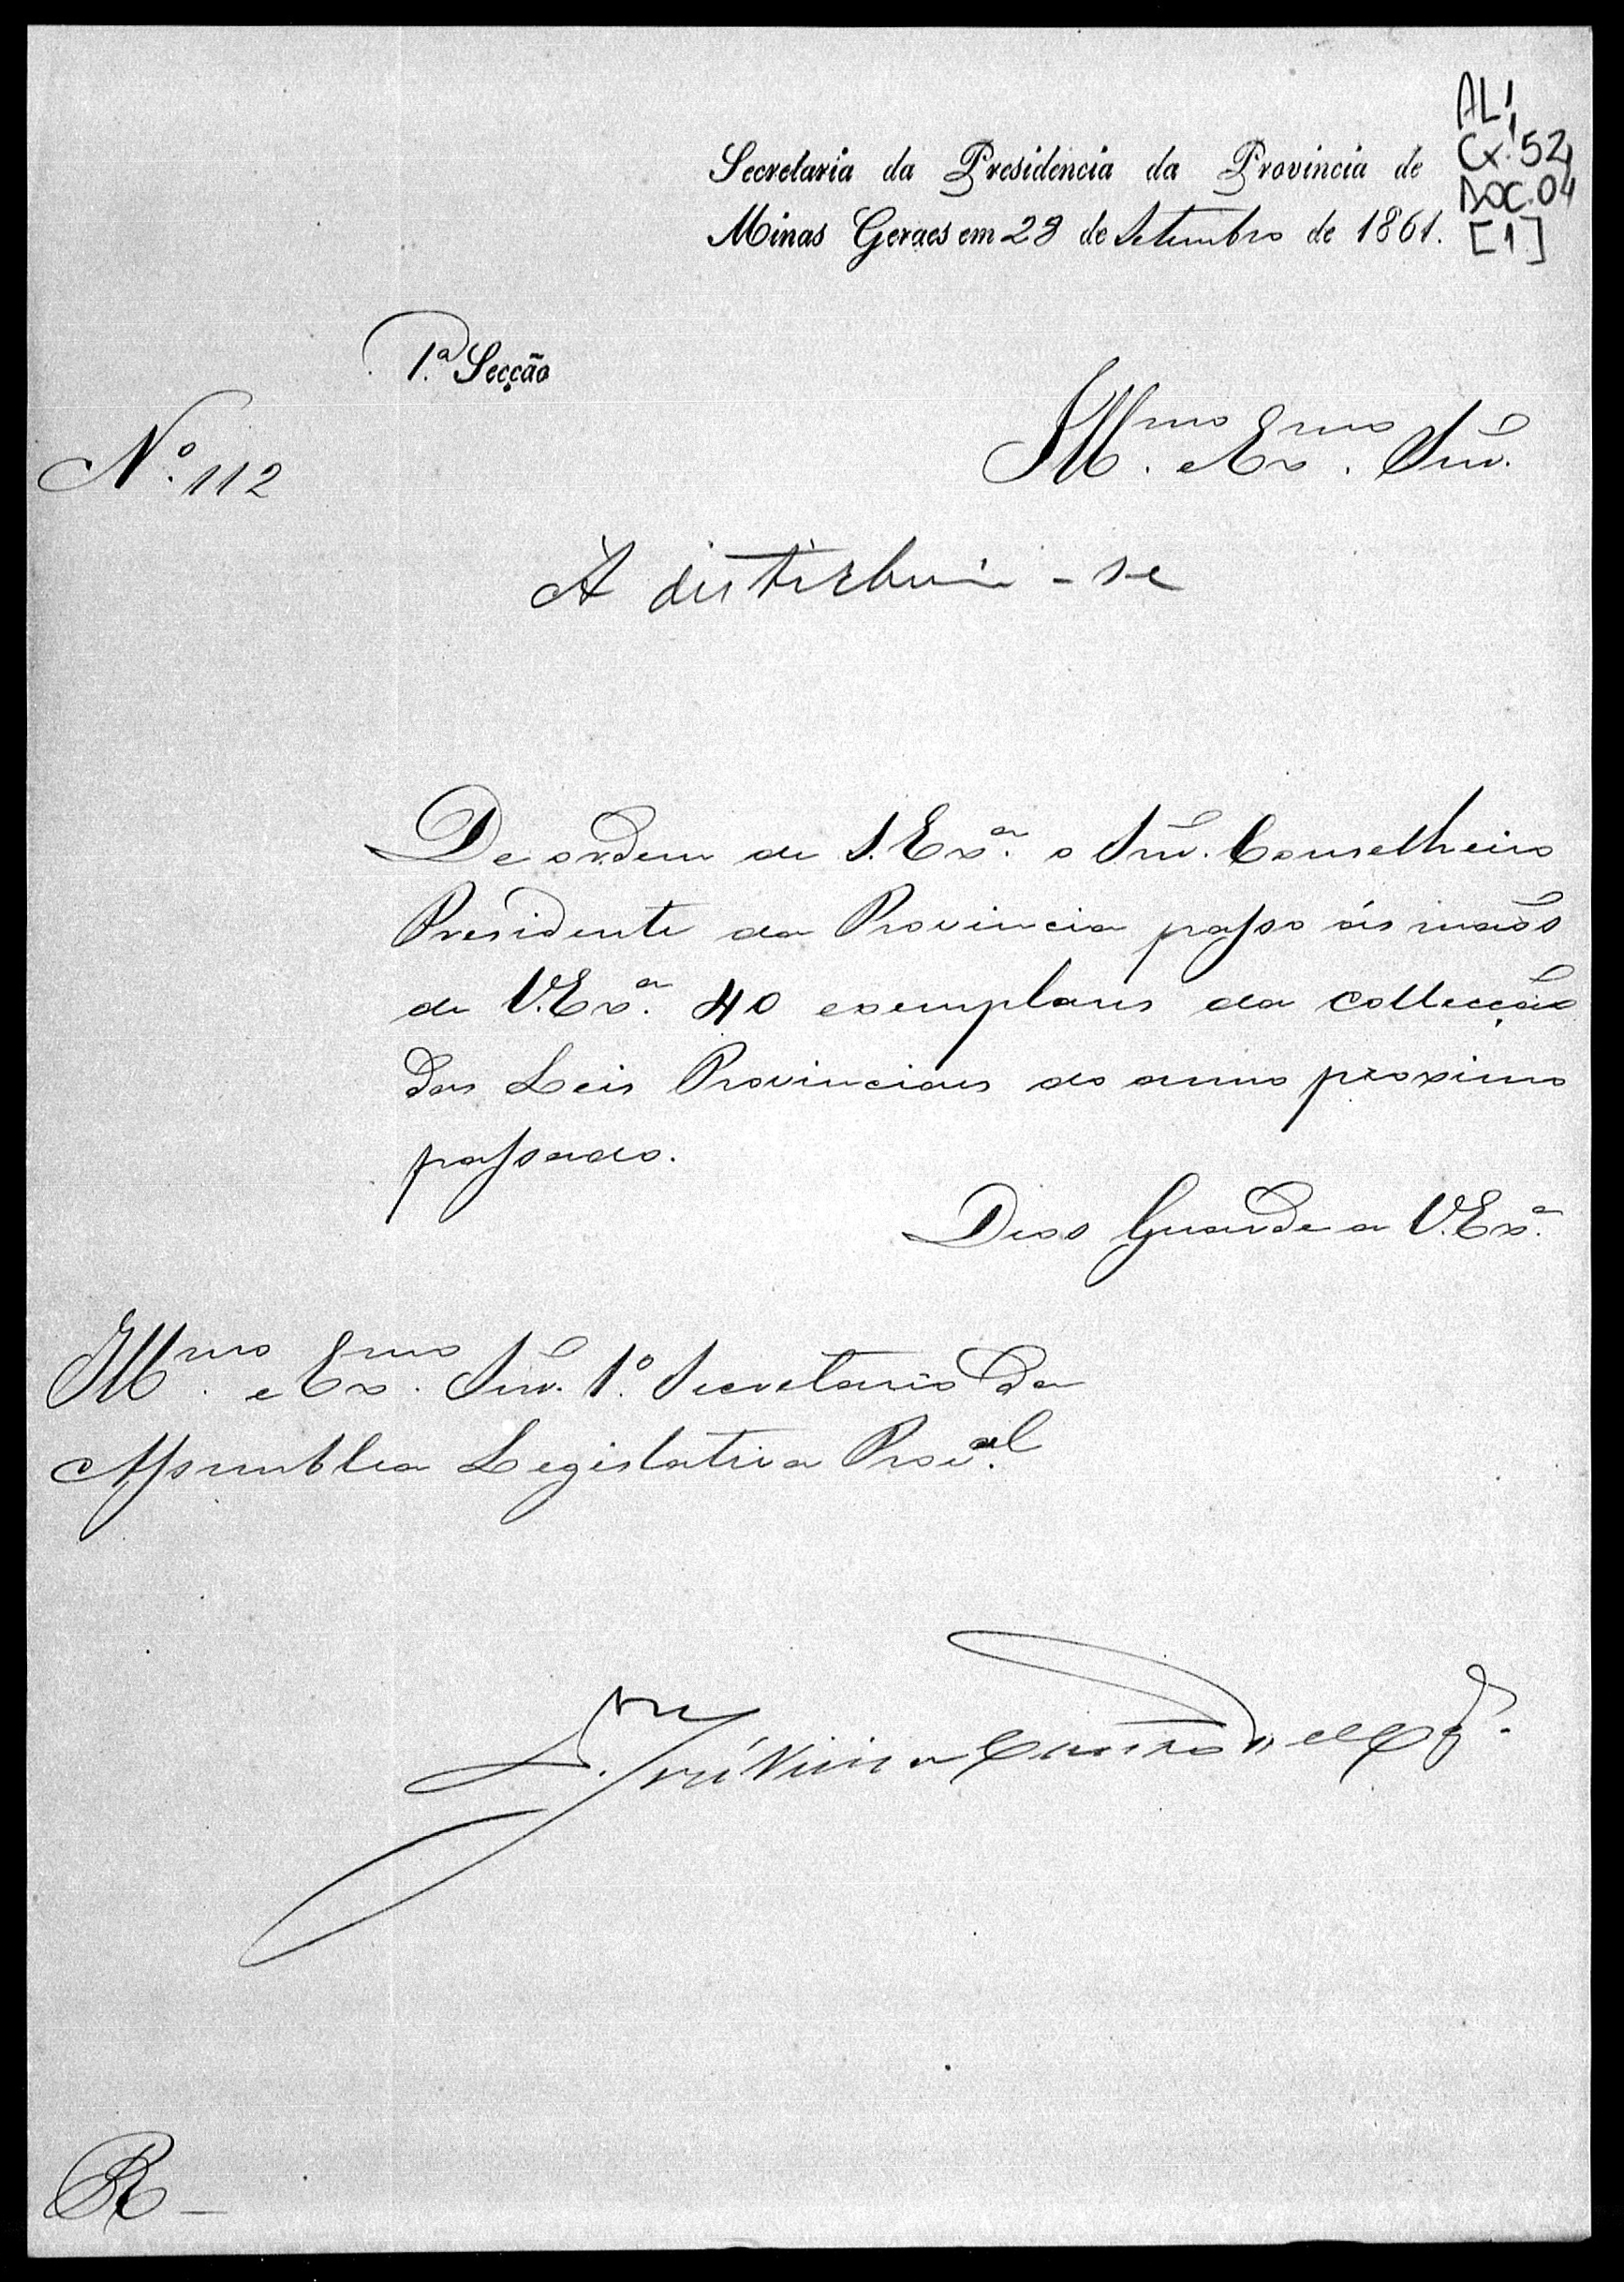 AL1,
Cx. 52,
DOC. 04
[1]
Secretaria da Presidencia da Provincia de
Minas Geraes em 23 de Setembro de 1861.
1.ª Secção
Nº. 112
Illmo. e Exmo. Snr.
A distirbuir-se
De ordem de S. Exª. o Snr. Conselheiro
Presidente da Provincia passo ás mãos
de V. Exª. 40 exemplares da collecção
das Leis Provinciaes do anno proximo
passado.
Deos Guarde a V. Exª.
Illmo. e Exmo. Snr. 1º. Secretario da
Assemblea Legislativa Proval.
José Vieira Couto de
R